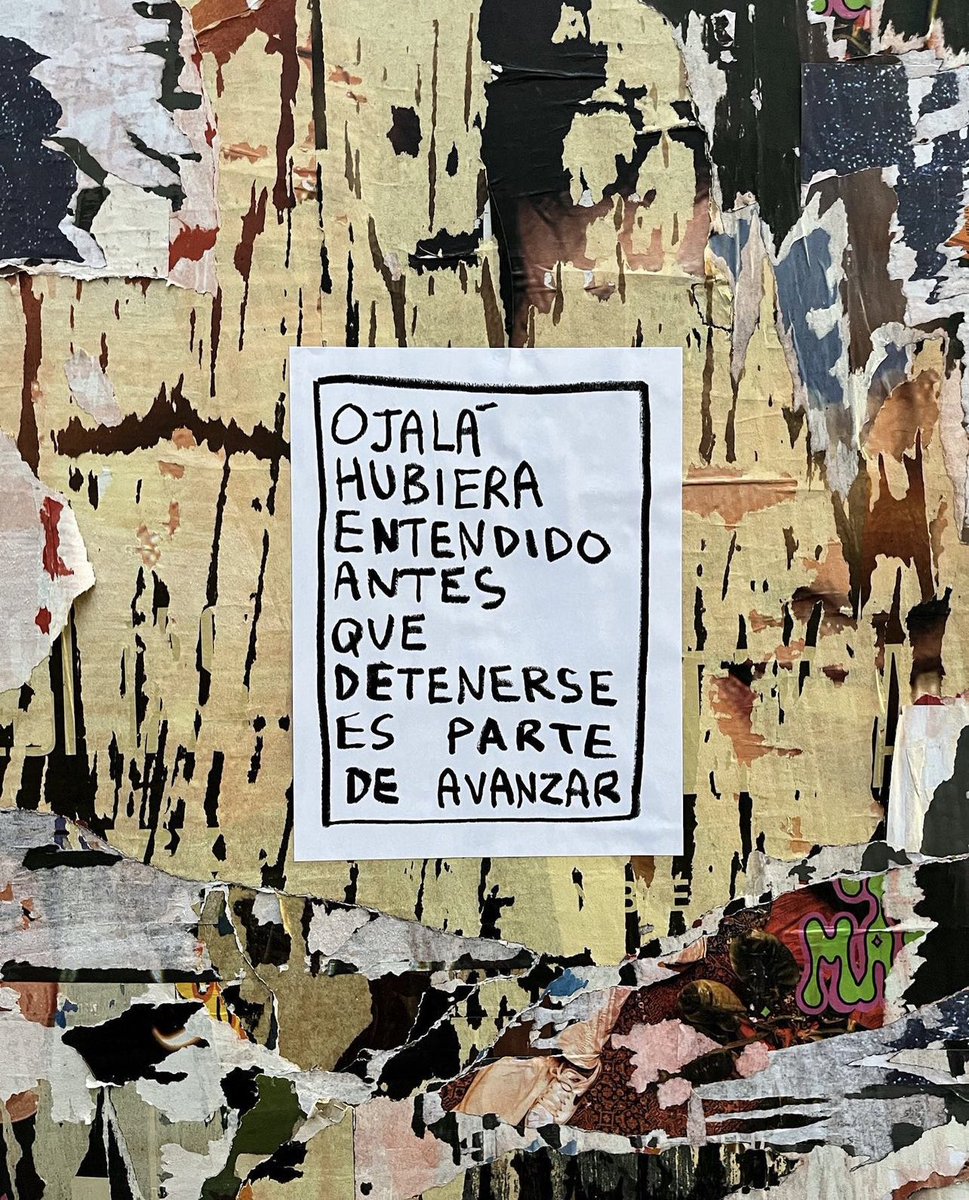 OJALÁ
HUBIERA
ENTENDIDO
ANTES
QUE
DETENERSE
ES PARTE
DE AVANZAR